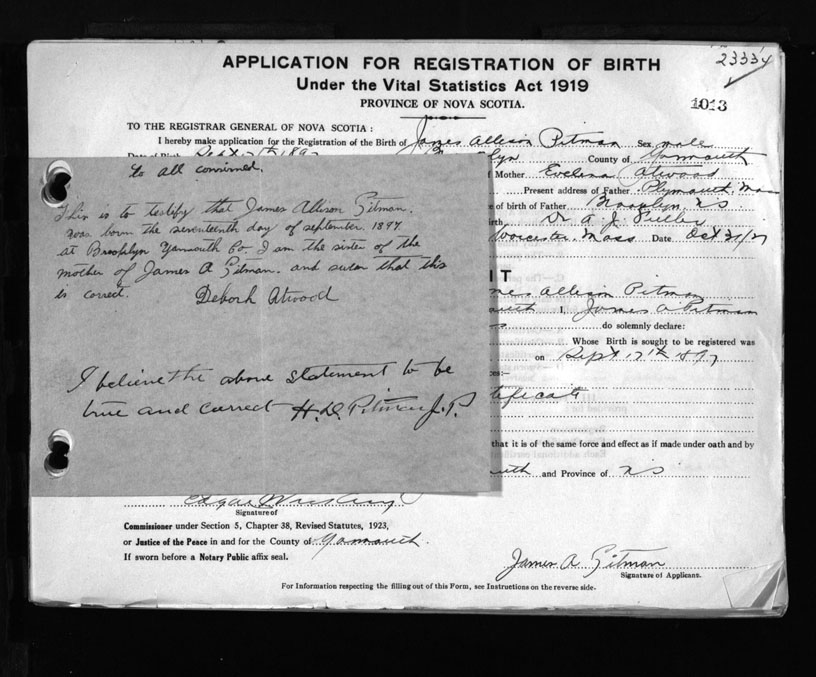 APPLICATION FOR REGISTRATION OF BIRTH
23334
Under the Vital Statistics Act 1919
PROVINCE OF NOVA SCOTIA.
1013
TO THE REGISTRAR GENERAL OF NOVA SCOTIA :
I hereby make application for the Registration of the Birth of James Allison Pitman Sex male
Sept 17th 1897 County of Yarmouth
to all concirned.
Mother Evelina Atwood
This is to testify that James Allison Pitman.
was born the seventeenth day of september 1897
at Brooklyn Yarmouth Co. I am the sister of the
mother of James A Pitman. and swear that this
is correct. Deborh Atwood
I believe the above statement to be
true and correct H. D. Pitman J. P.
Present address of Father Plymouth Mass
e of birth of Father Brooklyn NS
irth Dr A. J. Fuller
Worcester Mass Date Oct 31/27
IT
mes Allison Pitman
I, James A Pitman
do solemnly declare:
Whose Birth is sought to be registered was
on Sept 17th 1897
ces:-
tificate
that it is of the same force and effect as if made under oath and by
outh and Province of NS
Edgar
Signature of
Commissioner under Section 5, Chapter 38, Revised Statutes, 1923,
or Justice of the Peace in and for the County of Yarmouth.
If sworn before a Notary Public affix seal.
James A. Pitman
Signature of Applicant.
For Information respecting the filling out of this Form, see Instructions on the reverse side.